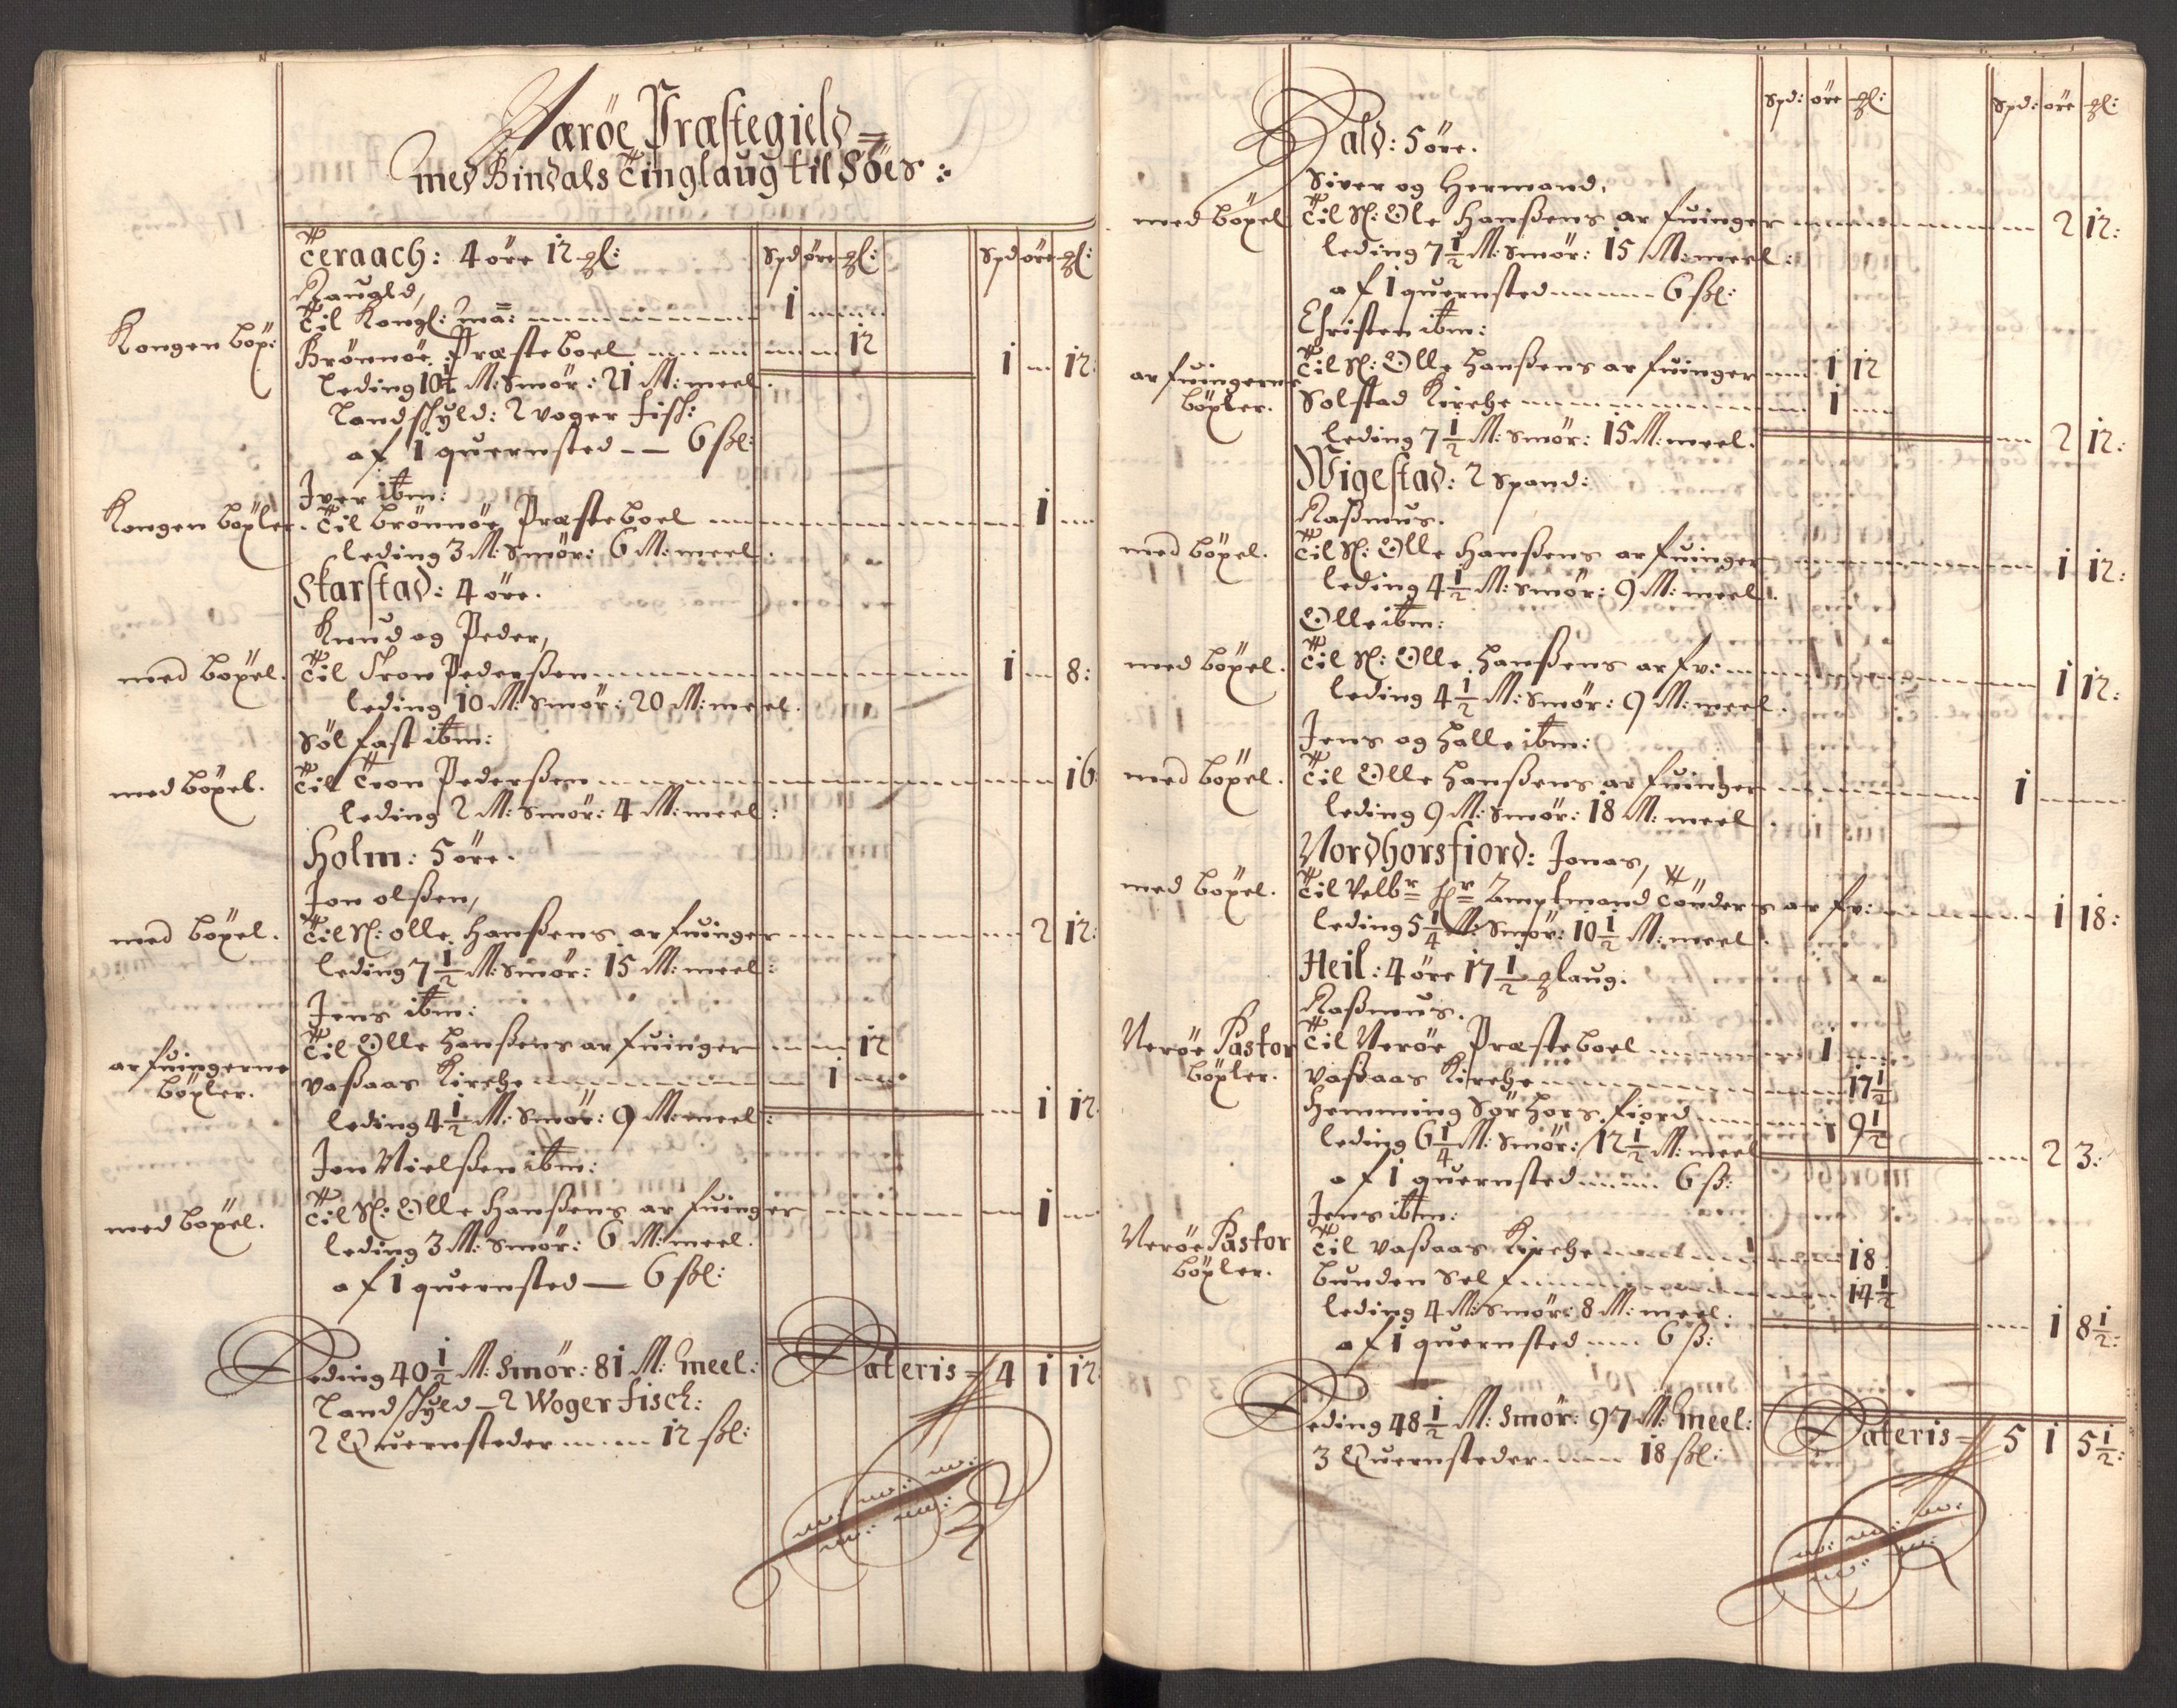 Nærøe Præstegield
med Bindals Tinglaug til Söes:
Spd öre
Spd öre
Teraach: 4 öre 12
Haugld,
Kongen böx:
Til Kongl: ma: 1
Brönnöe Præsteboel 12
1 12:
leding 10½ M: Smör: 21 M: meel.
Landschyld: 2 voger fisch:
af 1 quernsted — 6 sk:
Iver ibm:
Kongen böxler.
Til brönnöe Præsteboel 1
leding 3 M: Smör: 6 M: meel:
Skarstad: 4 öre.
Knud og Peder,
med böxel.
Til Tron Pederßen 1 8:
leding 10 M: Smör: 20 M: meel.
Söl fast ibm:
med böxel.
Til Tron Pederßen 16:
leding 2 M: Smör: 4 M: meel:
Holm: 5 öre.
Jon olßen,
med böxel.
Til Sl: olle Hanßens arfuinger 2 12:
leding 7½ M: Smör: 15 M: meel:
Jens ibm:
arfuingerne böxler.
Til Olle Hanßens arfuinger 12
vaßaas Kirche 1
1 12.
leding 4½ M: Smör: 9 M: meel:
Jon Nielßen ibm:
med böxel.
Til Sl: Olle Hanßens arfuinger 1
leding 3 M: Smör: 6 M: meel.
af 1 quernsted — 6 sk:
Leding 40½ M: Smör: 81 M: Meel:
Lateris 4 1 12.
Landschyld – 2 Woger fisch:
2 Quernsteder 12 sk:
Spd: öre
Spd: öre
Vald: 5 öre.
Siver og Hermand,
med böxel
Til Sl: Ole Hanßens arfuinger 2 12:
leding 7½ M: Smör: 15 M: meel:
af 1 quernsted 6 sk:
Christen ibm:
arfuingerne böxler.
Til Sl: Olle Hanßens arfuinger 1 12
Solstad Kirche 1
leding 7½ M: Smör: 15 M: meel.
2 12:
Wigestad: 2 Spand:
Raßmus.
med böxel.
Til Sl: Olle Hanßens arfuinger 1 12:
leding 4½ M: Smör: 9 M: meel.
Olle ibm:
med böxel.
Til Sl: Olle Hanßens arfv: 1 12:
leding 4½ M: Smör: 9 M: meel.
Jens og Halle ibm:
med böxel.
Til Olle Hanßens arfuinger 1
leding 9 M: Smör: 18 M: meel.
Nordhorsfiord: Jonas,
med böxel.
Til Velbr Hr Amptmand Tönders arfv: 1 18:
leding 5¼ M: Smör: 10½ M: meel.
Heil: 4 öre 17½ laug.
Raßmus.
Neröe Pastor böxler.
Til Neröe Præsteboel 1
vaßaas Kirche 17½
Hemming Sörhorsfiord 1 9½
leding 6¼ M: Smör: 12½ M: meel
2 3:
af 1 quernsted 6 ß:
Jens ibm:
Neröe Pastor böxler.
Til vaßaas Kirche 18
bunden Sel 14½
leding 4 M: Smör: 8 M: meel.
1 8½:
af 1 quernsted 6 ß:
Leding 48½ M: Smör: 97 M: Meel:
Lateris 5 1 5½:
3 Quernsteder 18 sk: